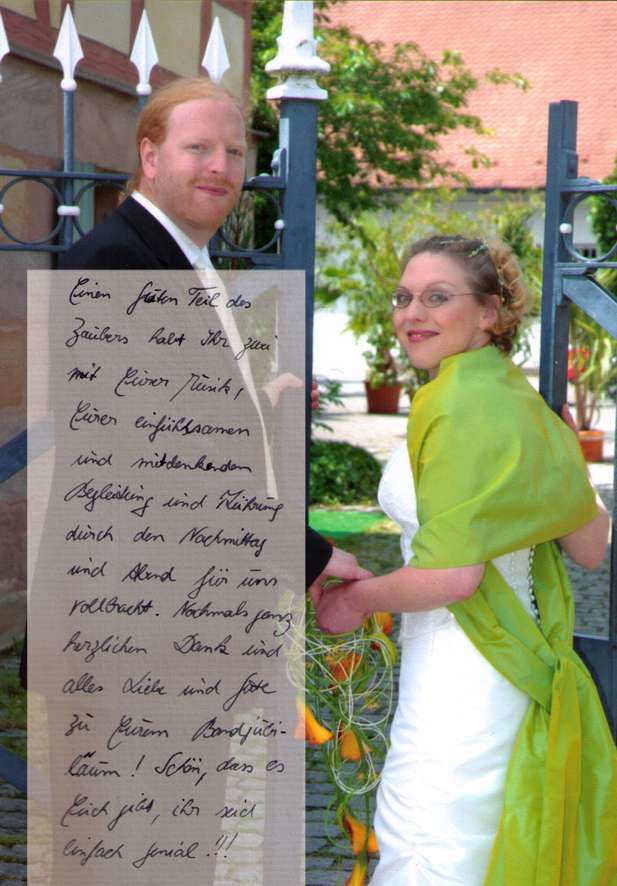 Einen guten Teil des
Zaubers habt Ihr zwei
mit Eurer Musik,
Eurer einfühlsamen
und mitdenkenden
Begleitung und Führung
durch den Nachmittag
und Abend für uns
vollbracht. Nochmals ganz
herzlichen Dank und
alles Liebe und Gute
zu Eurem Bandjubi-
läum! Schön, dass es
Euch gibt, ihr seid
einfach genial!!!